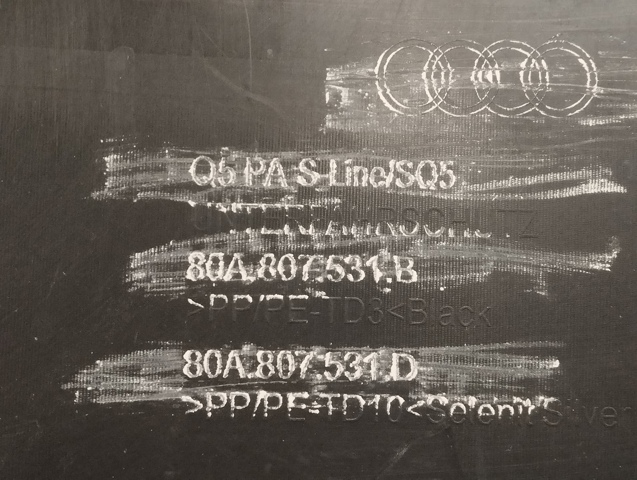 Q5 PA S-Line/SQ5
UNTERFAHRSCHUTZ
80A.807.531.B
>PP/PE-TD3<Black
80A.807.531.D
>PP/PE-TD10<Selenit Silver